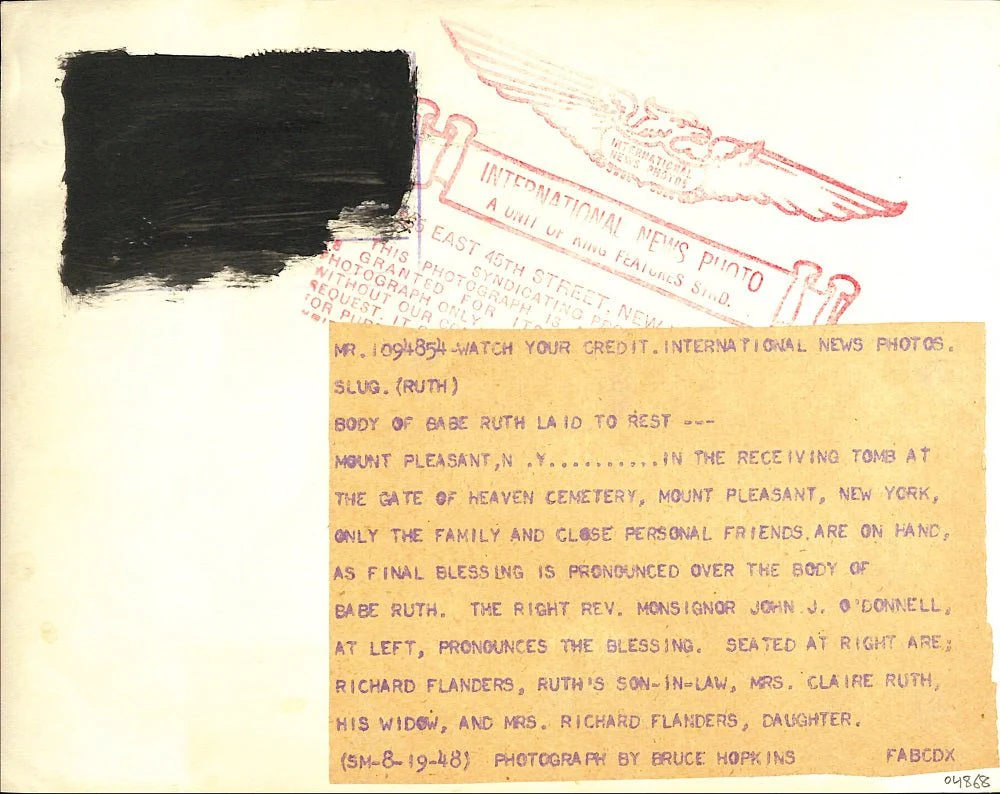 INTERNATIONAL
NEWS PHOTOS
INTERNATIONAL NEWS PHOTO
A UNIT OF KING FEATURES SYND.
EAST 45TH STREET, NEW
THIS PHOTOGRAPH IS
GRANTED FOR
SYNDICATING
PHOTOGRAPH ONLY
WITHOUT OUR
REQUEST. IT
FOR
MR.1094854-WATCH YOUR CREDIT.INTERNATIONAL NEWS PHOTOS.
SLUG.(RUTH)
BODY OF BABE RUTH LAID TO REST ---
MOUNT PLEASANT,N .Y...........IN THE RECEIVING TOMB AT
THE GATE OF HEAVEN CEMETERY, MOUNT PLEASANT, NEW YORK,
ONLY THE FAMILY AND CLOSE PERSONAL FRIENDS ARE ON HAND,
AS FINAL BLESSING IS PRONOUNCED OVER THE BODY OF
BABE RUTH. THE RIGHT REV. MONSIGNOR JOHN J. O'DONNELL,
AT LEFT, PRONOUNCES THE BLESSING. SEATED AT RIGHT ARE;
RICHARD FLANDERS, RUTH'S SON-IN-LAW, MRS. CLAIRE RUTH,
HIS WIDOW, AND MRS. RICHARD FLANDERS, DAUGHTER.
(SM-8-19-48) PHOTOGRAPH BY BRUCE HOPKINS FABCDX
04868